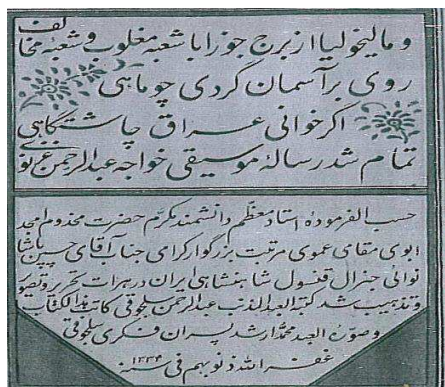 و مالیخولیا از برج جوزا با شعبه مغلوب و شعبه مخالف
روی بر آسمان کردی چو ماهی
اکر خوانی عراق چاشتکاهی
تمام شد رسالهٔ موسیقی خواجه عبدالرحمن غزنوی
حسب الفرمودهٔ استاد معظم دانشمند مکرم حضرت مخدوم امجد
ابوی مقامی عموی مرتبت بزرکوار کرامی جناب آقای حسین پاشا
نوائی جنرال قنسول شاهنشاهی ایران در هرات تحریر و تصویر
و تذهیب شد کتبه العبد المذنب عبدالرحمن سلجوقی کاتب هذا الکتاب
و صوّره العبد محمد ارشد پسران فکری سلجوقی
غفر الله ذنوبهم فی سنه ۱۳۳۴